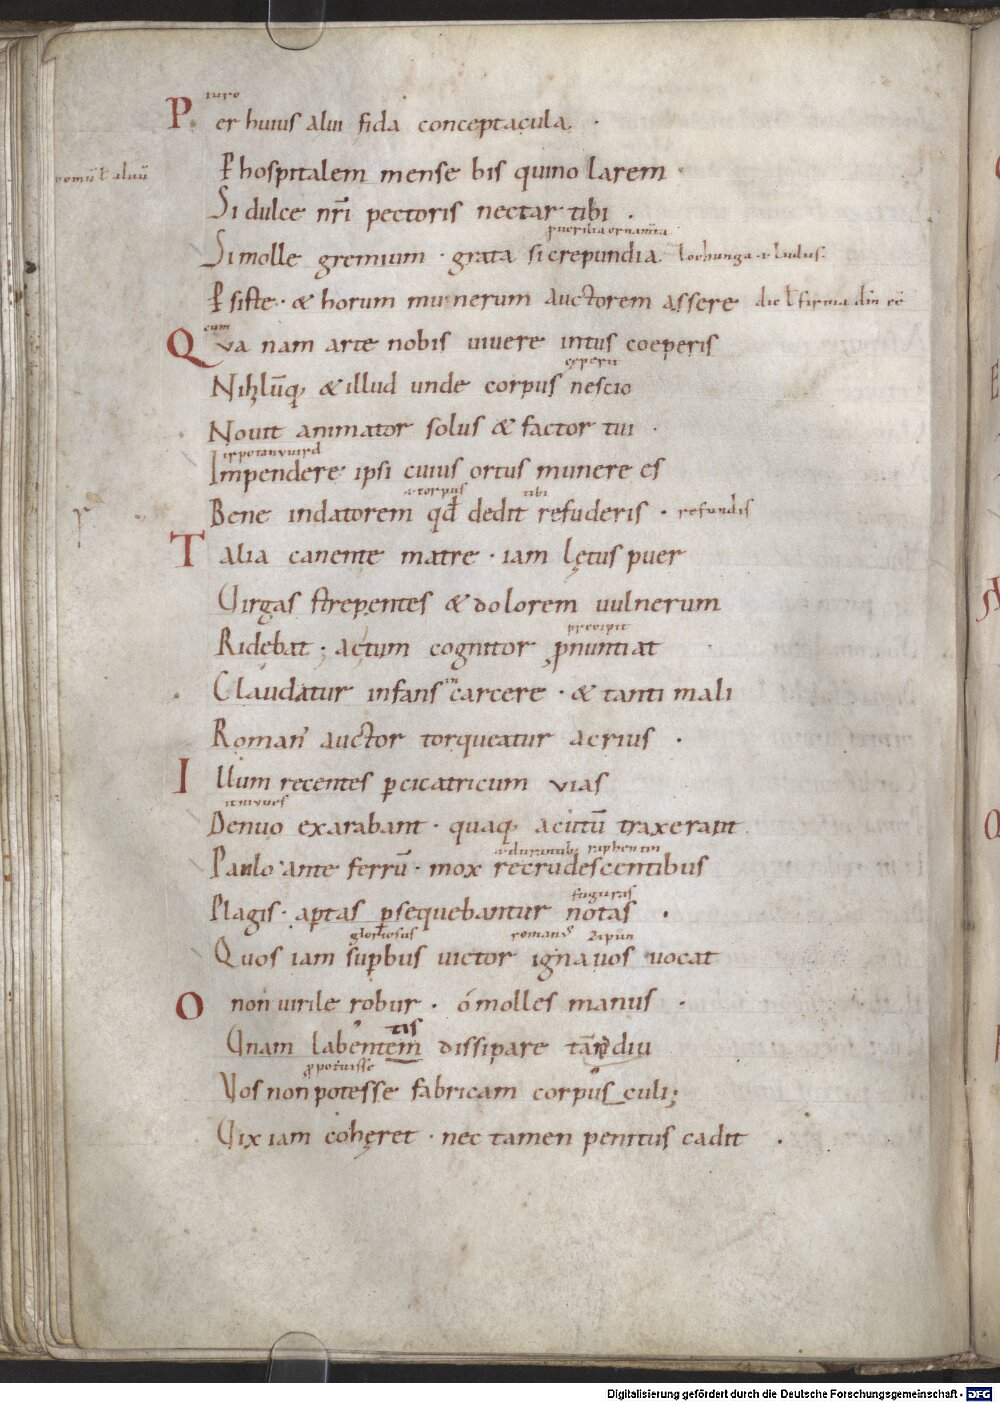 iuro
Per huius alui fida conceptacula .
domū ł aluū
P̱ hospitalem mense bis quino larem
Si dulce nr̄i pectoris nectar tibi .
puerilia ornamta
Si molle gremium · grata si crepundia lochunga · i · ludus ·
P̱ siste · & horum munerum auctorem assere dic ł firma dm̄ eē
cum
Qva nam arte nobis viuere intus coeperis
ceperit
Nihilūq; & illud unde corpus nescio
Nouit animator solus & factor tui ·
Impendere ipsi cuius ortus munere es
· i · corpus tibi
Bene in datorem qđ dedit refuderis · refundis
Talia canente matre · iam lętus puer
Virgas strepentes & dolorem uulnerum
precipit
Ridebat ; actum cognitor p̱nuntiat
Claudatur infans in carcere · & tanti mali
Roman' auctor torqueatur acrius ·
Illum recentes p̱ cicatricum vias
Denuo exarabant · quaq; acutū traxerant
Paulo ante ferrū · mox recrudescentibus
figuras
Plagis · aptas p̱sequebantur notas ·
gloriosus romanꝰ
Quos iam sup̱bus uictor ignauos vocat
O non uirile robur · ó molles manus ·
tis
Vnam labentem dissipare tādiu
p̱potuisse
Vos non potesse fabricam corpusculi ;
Vix iam cohęret · nec tamen penitus cadit ·
Digitalisierung gefördert durch die Deutsche Forschungsgemeinschaft - DFG